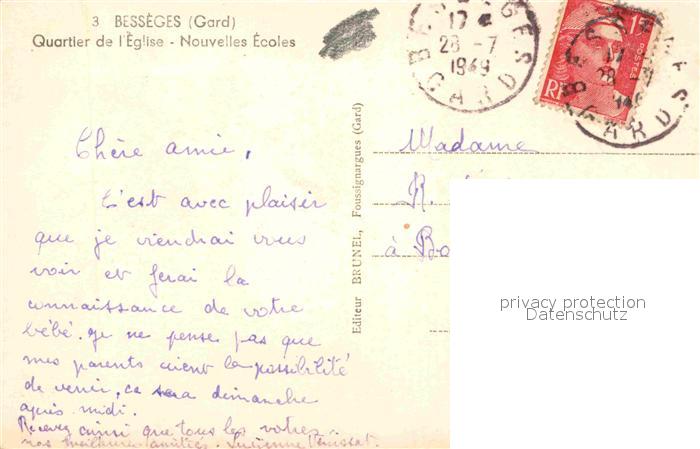 3 BESSÈGES (Gard)
Quartier de l'Église - Nouvelles Écoles
BESSEGES
17
28-7
1949
GARD
POSTES
RF
Chère amie,
C'est avec plaisir
que je viendrai vous
voir et ferai la
connaissance de votre
bébé. Je ne pense pas que
mes parents aient la possibilité
de venir, ce sera dimanche
après-midi.
Recevez ainsi que tous les vôtres
nos meilleures amitiés. Lucienne
Editeur BRUNEL, Foussignargues (Gard)
Madame
R.
à Bo
privacy protection
Datenschutz